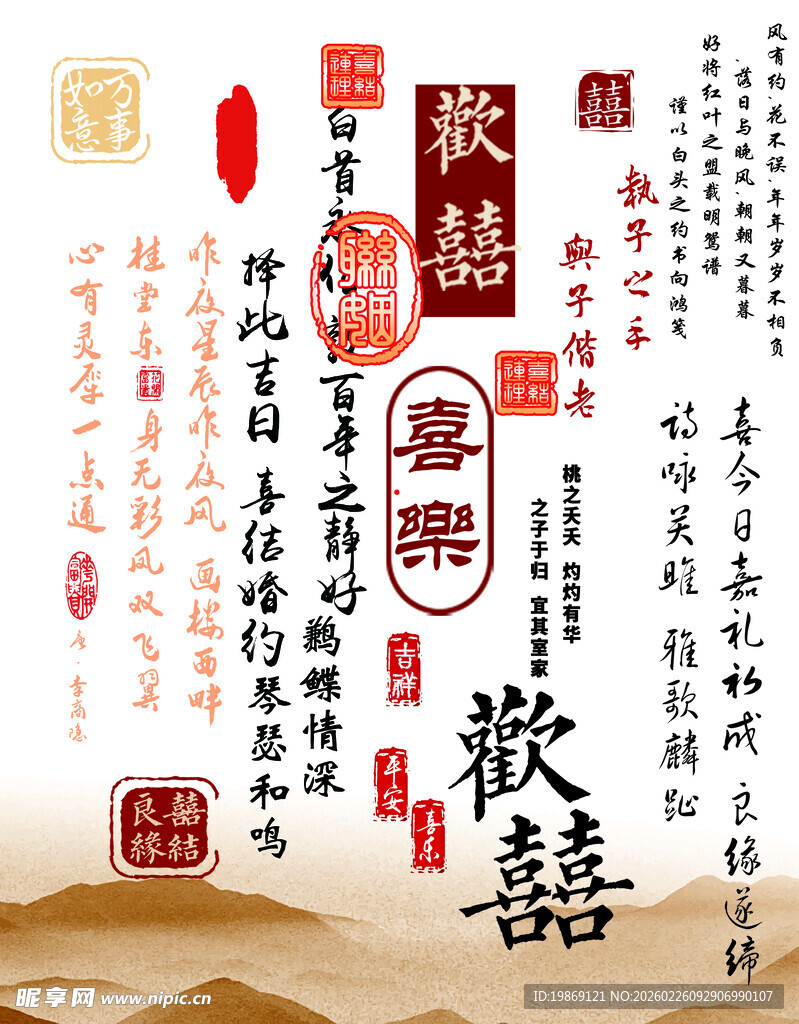 风有约,花不误,年年岁岁不相负
,落日与晚风,朝朝又暮暮
好将红叶之盟载明鸳谱
谨以白头之约书向鸿笺
囍
執子之手
與子偕老
歡囍
喜結連理
喜今日嘉礼初成 良缘遂缔
诗咏关雎 雅歌麟趾
喜結連理
桃之夭夭 灼灼有华
之子于归 宜其室家
歡囍
喜樂
聯姻
白首永 百年之静好 鹣鲽情深
择此吉日 喜结婚约 琴瑟和鸣
吉祥
平安
喜乐
万事如意
昨夜星辰昨夜风 画楼西畔
桂堂东 身无彩凤双飞翼
心有灵犀一点通
花開富貴
唐·李商隐
囍結良緣
昵享网 www.nipic.cn
ID:19869121 NO:20260226092906990107